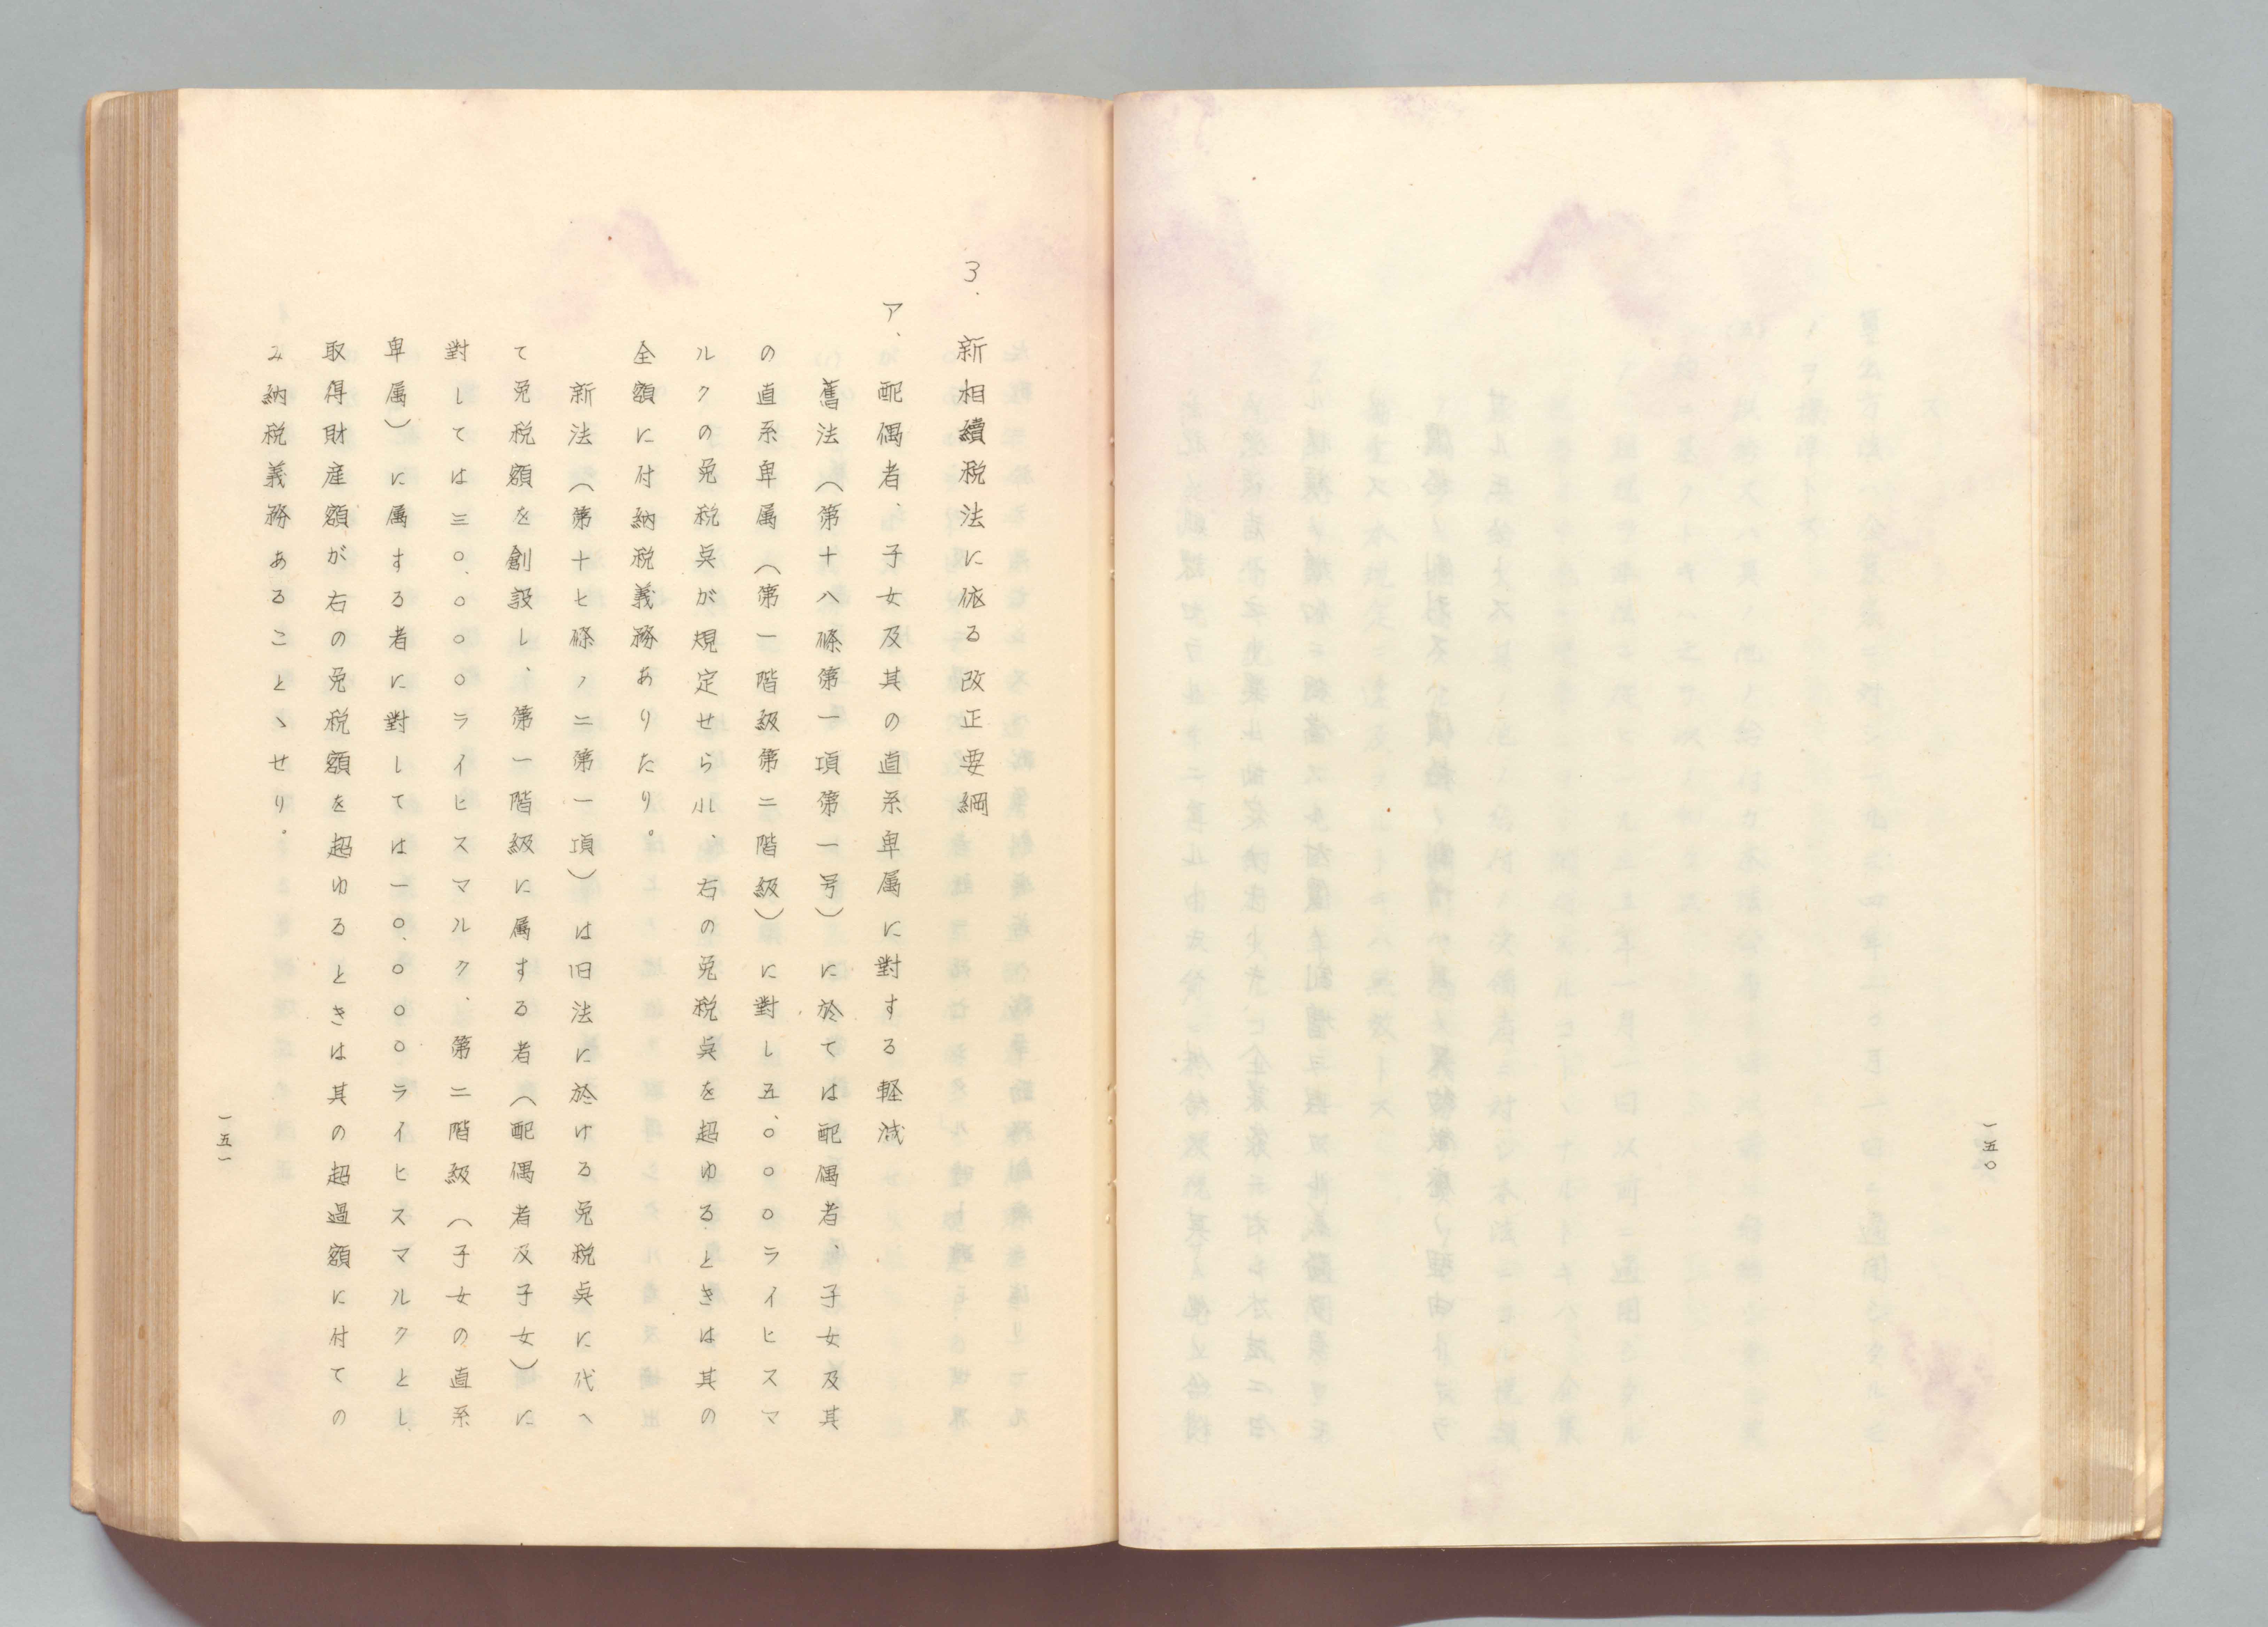 一五〇
3、新相續税法に依る改正要綱
ア、配偶者、子女及其の直系卑属に對する軽減
舊法（第十八條第一項第一号）に於ては配偶者、子女及其
の直系卑属（第一階級第二階級）に對し五、〇〇〇ライヒスマ
ルクの免税点が規定せられ、右の免税点を超ゆるときは其の
全額に付納税義務ありたり。
新法（第十七條ノ二第一項）は旧法に於ける免税点に代へ
て免税額を創設し、第一階級に属する者（配偶者及子女）に
對しては三〇、〇〇〇ライヒスマルク、第二階級（子女の直系
卑属）に属する者に對しては一〇、〇〇〇ライヒスマルクとし
取得財産額が右の免税額を超ゆるときは其の超過額に付ての
み納税義務あることゝせり。
一五一